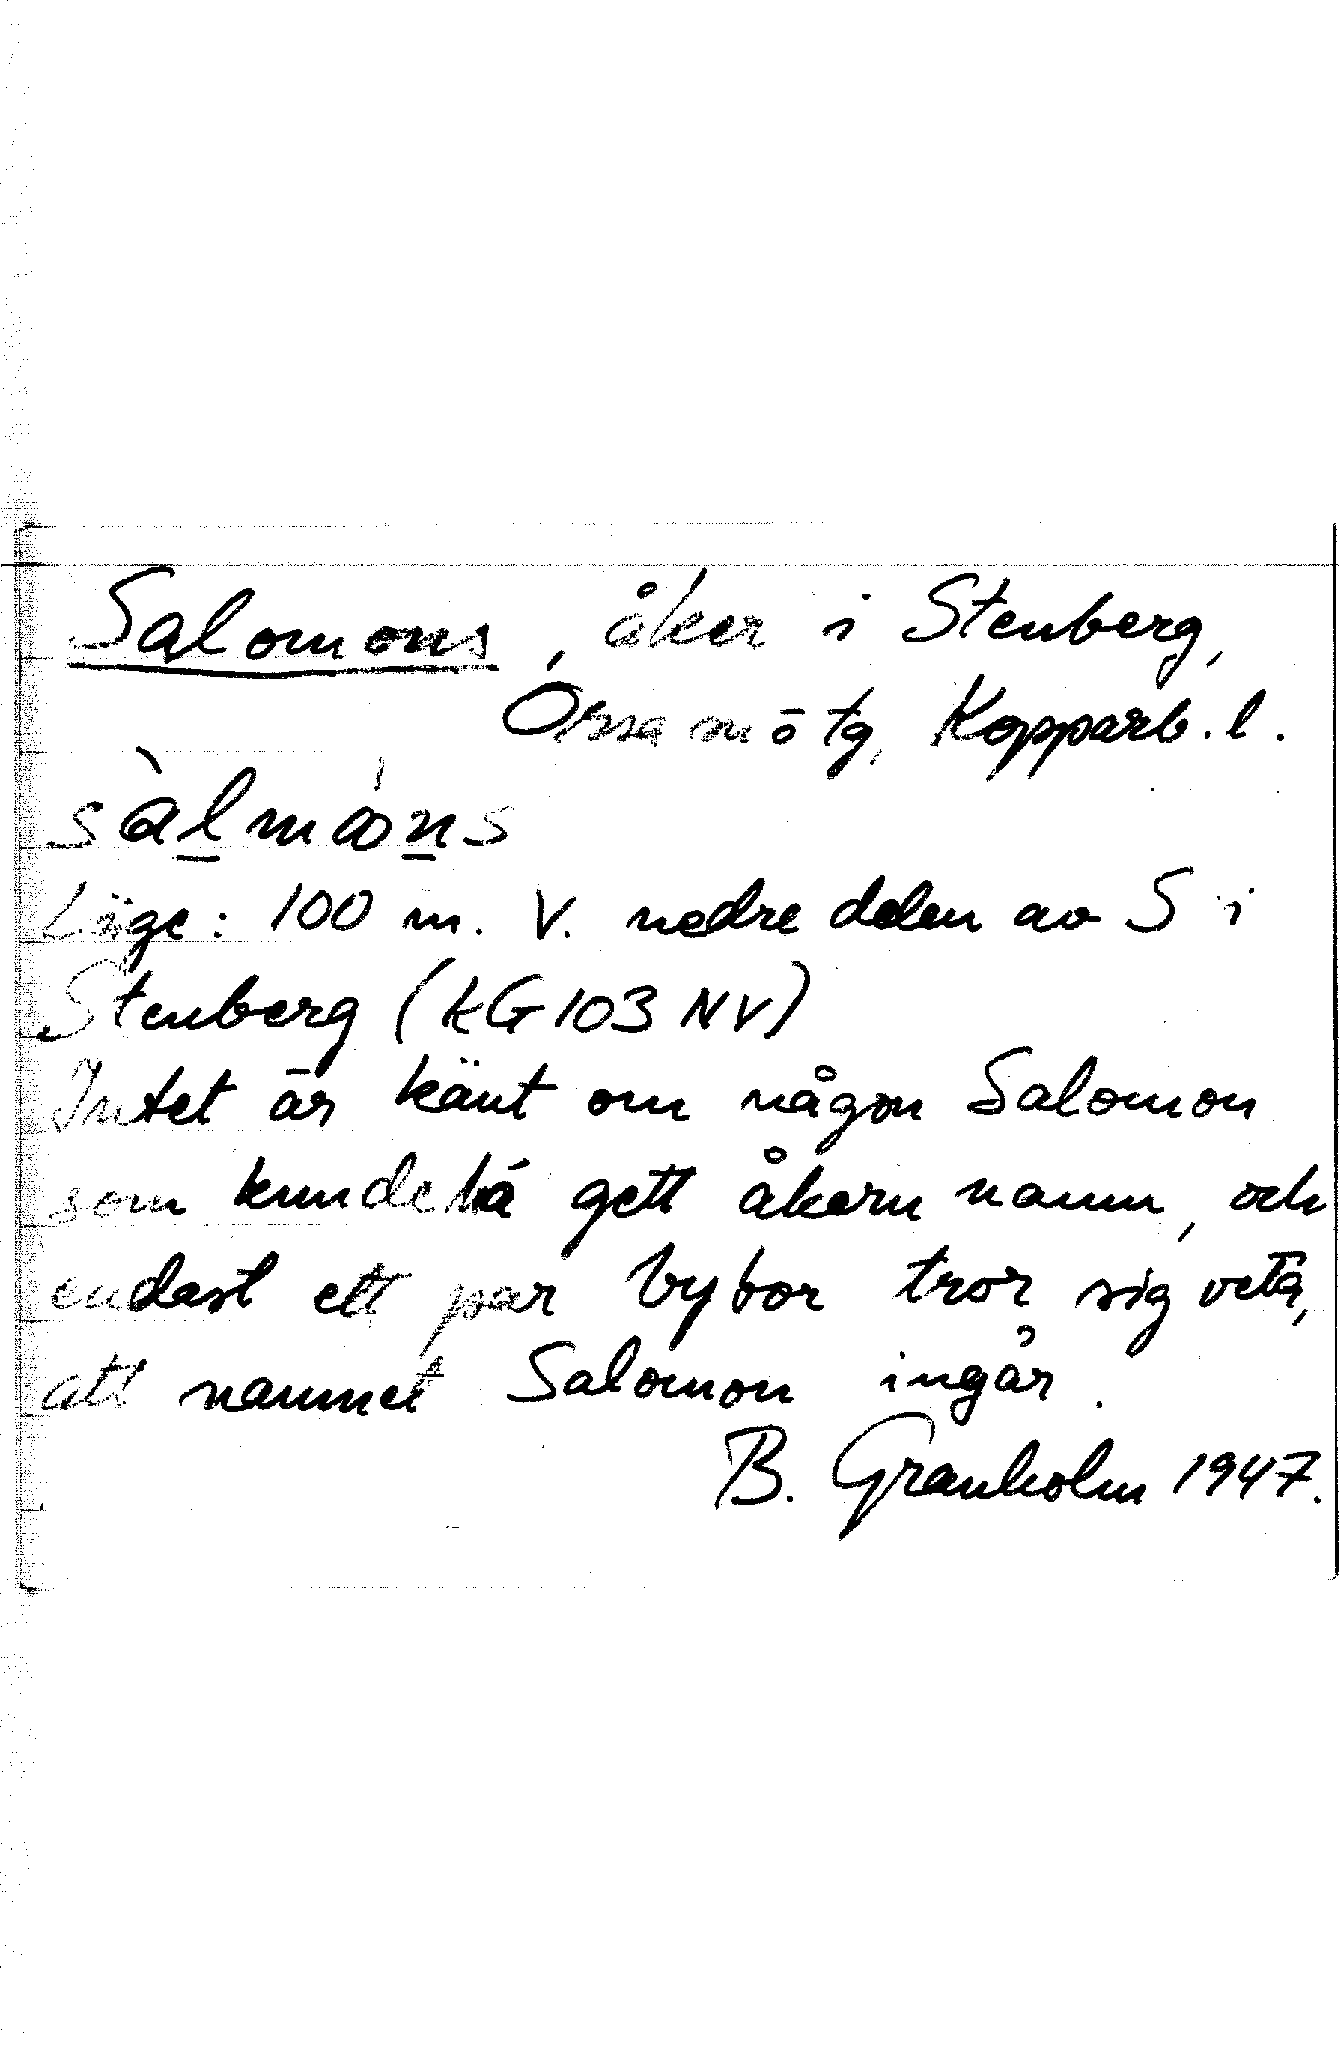 Salomons, åker i Stenberg,
Orsa sn ö tg, Kopparb. l.
sàlmòns
Läge: 100 m. V. nedre delen av S i
Stenberg (kG 103 NV)
Intet är känt om någon Salomon
som kunde há gett åkern namn, och
endast ett par bybor tror sig veta,
att namnet Salomon ingår.
B. Granholm 1947.